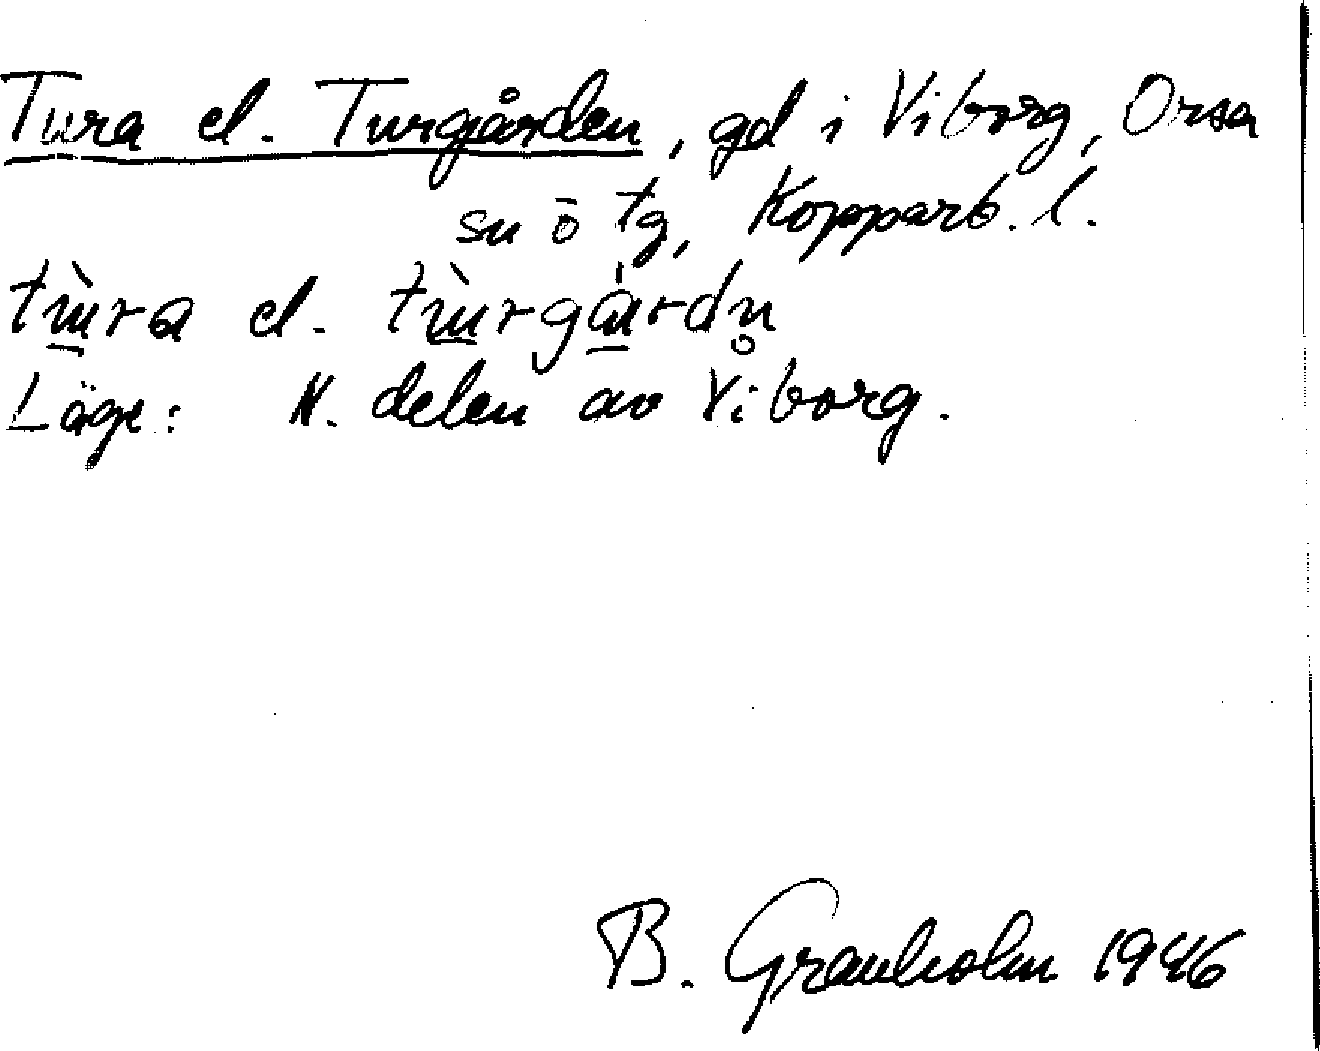 Tura el. Turgården, gd i Viborg, Orsa
sn ö tg, Kopparb. l.
tùra el. tùrgárdn̥
Läge: N. delen av Viborg.
B. Granholm 1946